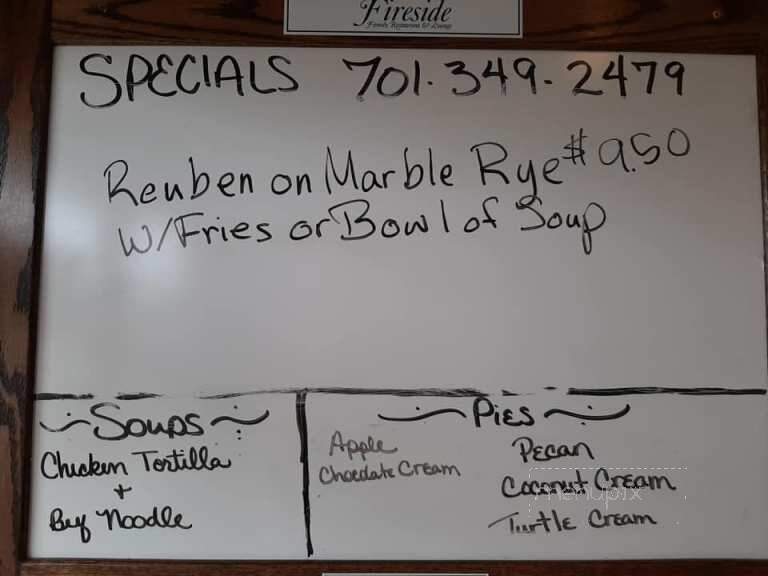 Fireside
Family Restaurant & Lounge
SPECIALS 701.349.2479
Reuben on Marble Rye # 9.50
W/Fries or Bowl of Soup
Soups
Chicken Tortilla
+
Beef Noodle
Pies
Apple
Chocolate Cream
Pecan
Coconut Cream
Turtle Cream
menupix